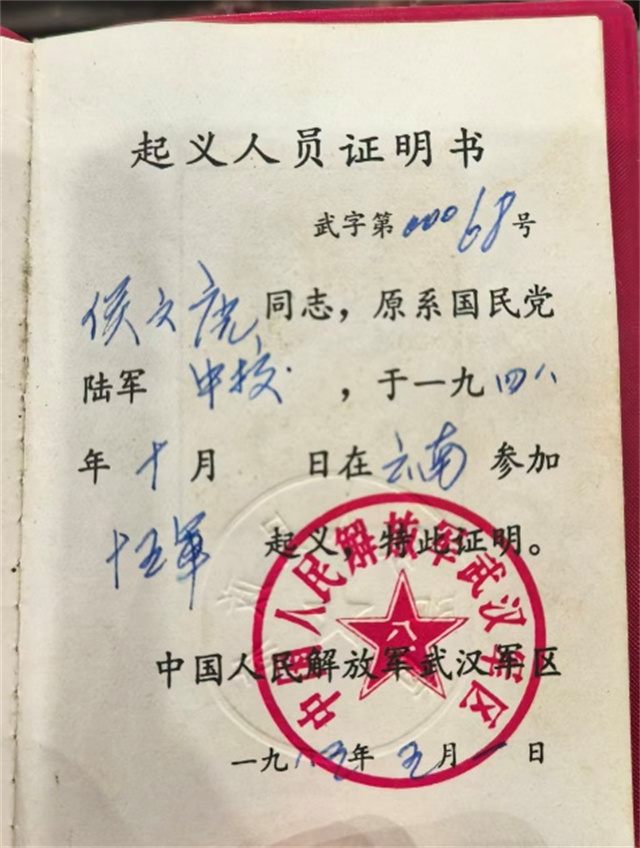 起义人员证明书
武字第00068号
侯文虎同志，原系国民党
陆军 中校 ，于一九四八
年十月 日在云南参加
十五军 起义，特此证明。
中国人民解放军武汉军区
中国人民解放军武汉军区
八一
一九八五年五月一日